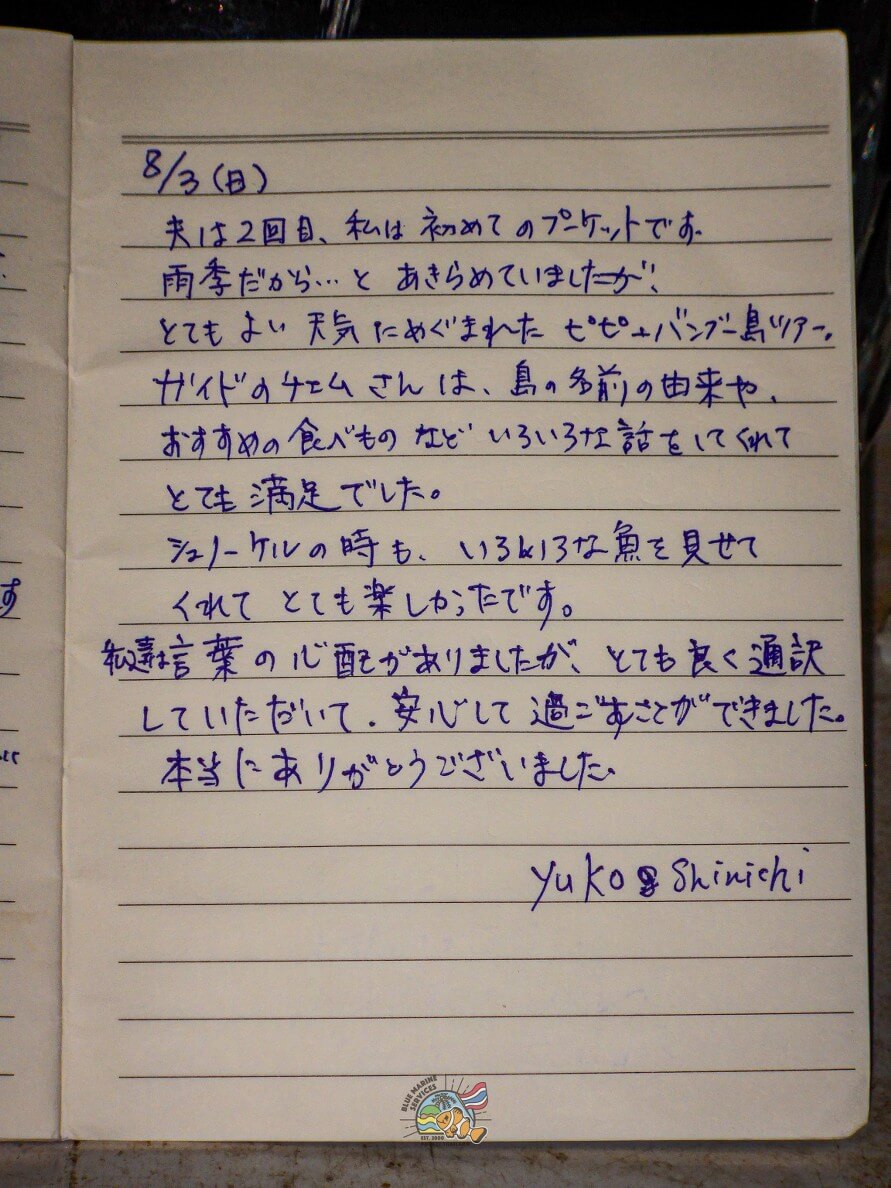 8/3(日)
夫は2回目、私は初めてのプーケットです。
雨季だから…とあきらめていましたが、
とてもよい天気にめぐまれたピピ+バンブー島ツアー。
ガイドのチェムさんは、島の名前の由来や、
おすすめの食べものなどいろいろな話をしてくれて
とても満足でした。
シュノーケルの時も、いろいろな魚を見せて
くれてとても楽しかったです。
私達は言葉の心配がありましたが、とても良く通訳
していただいて、安心して過ごすことができました。
本当にありがとうございました。
Yuko & Shinichi
BLUE MARINE SERVICES
EST. 2000